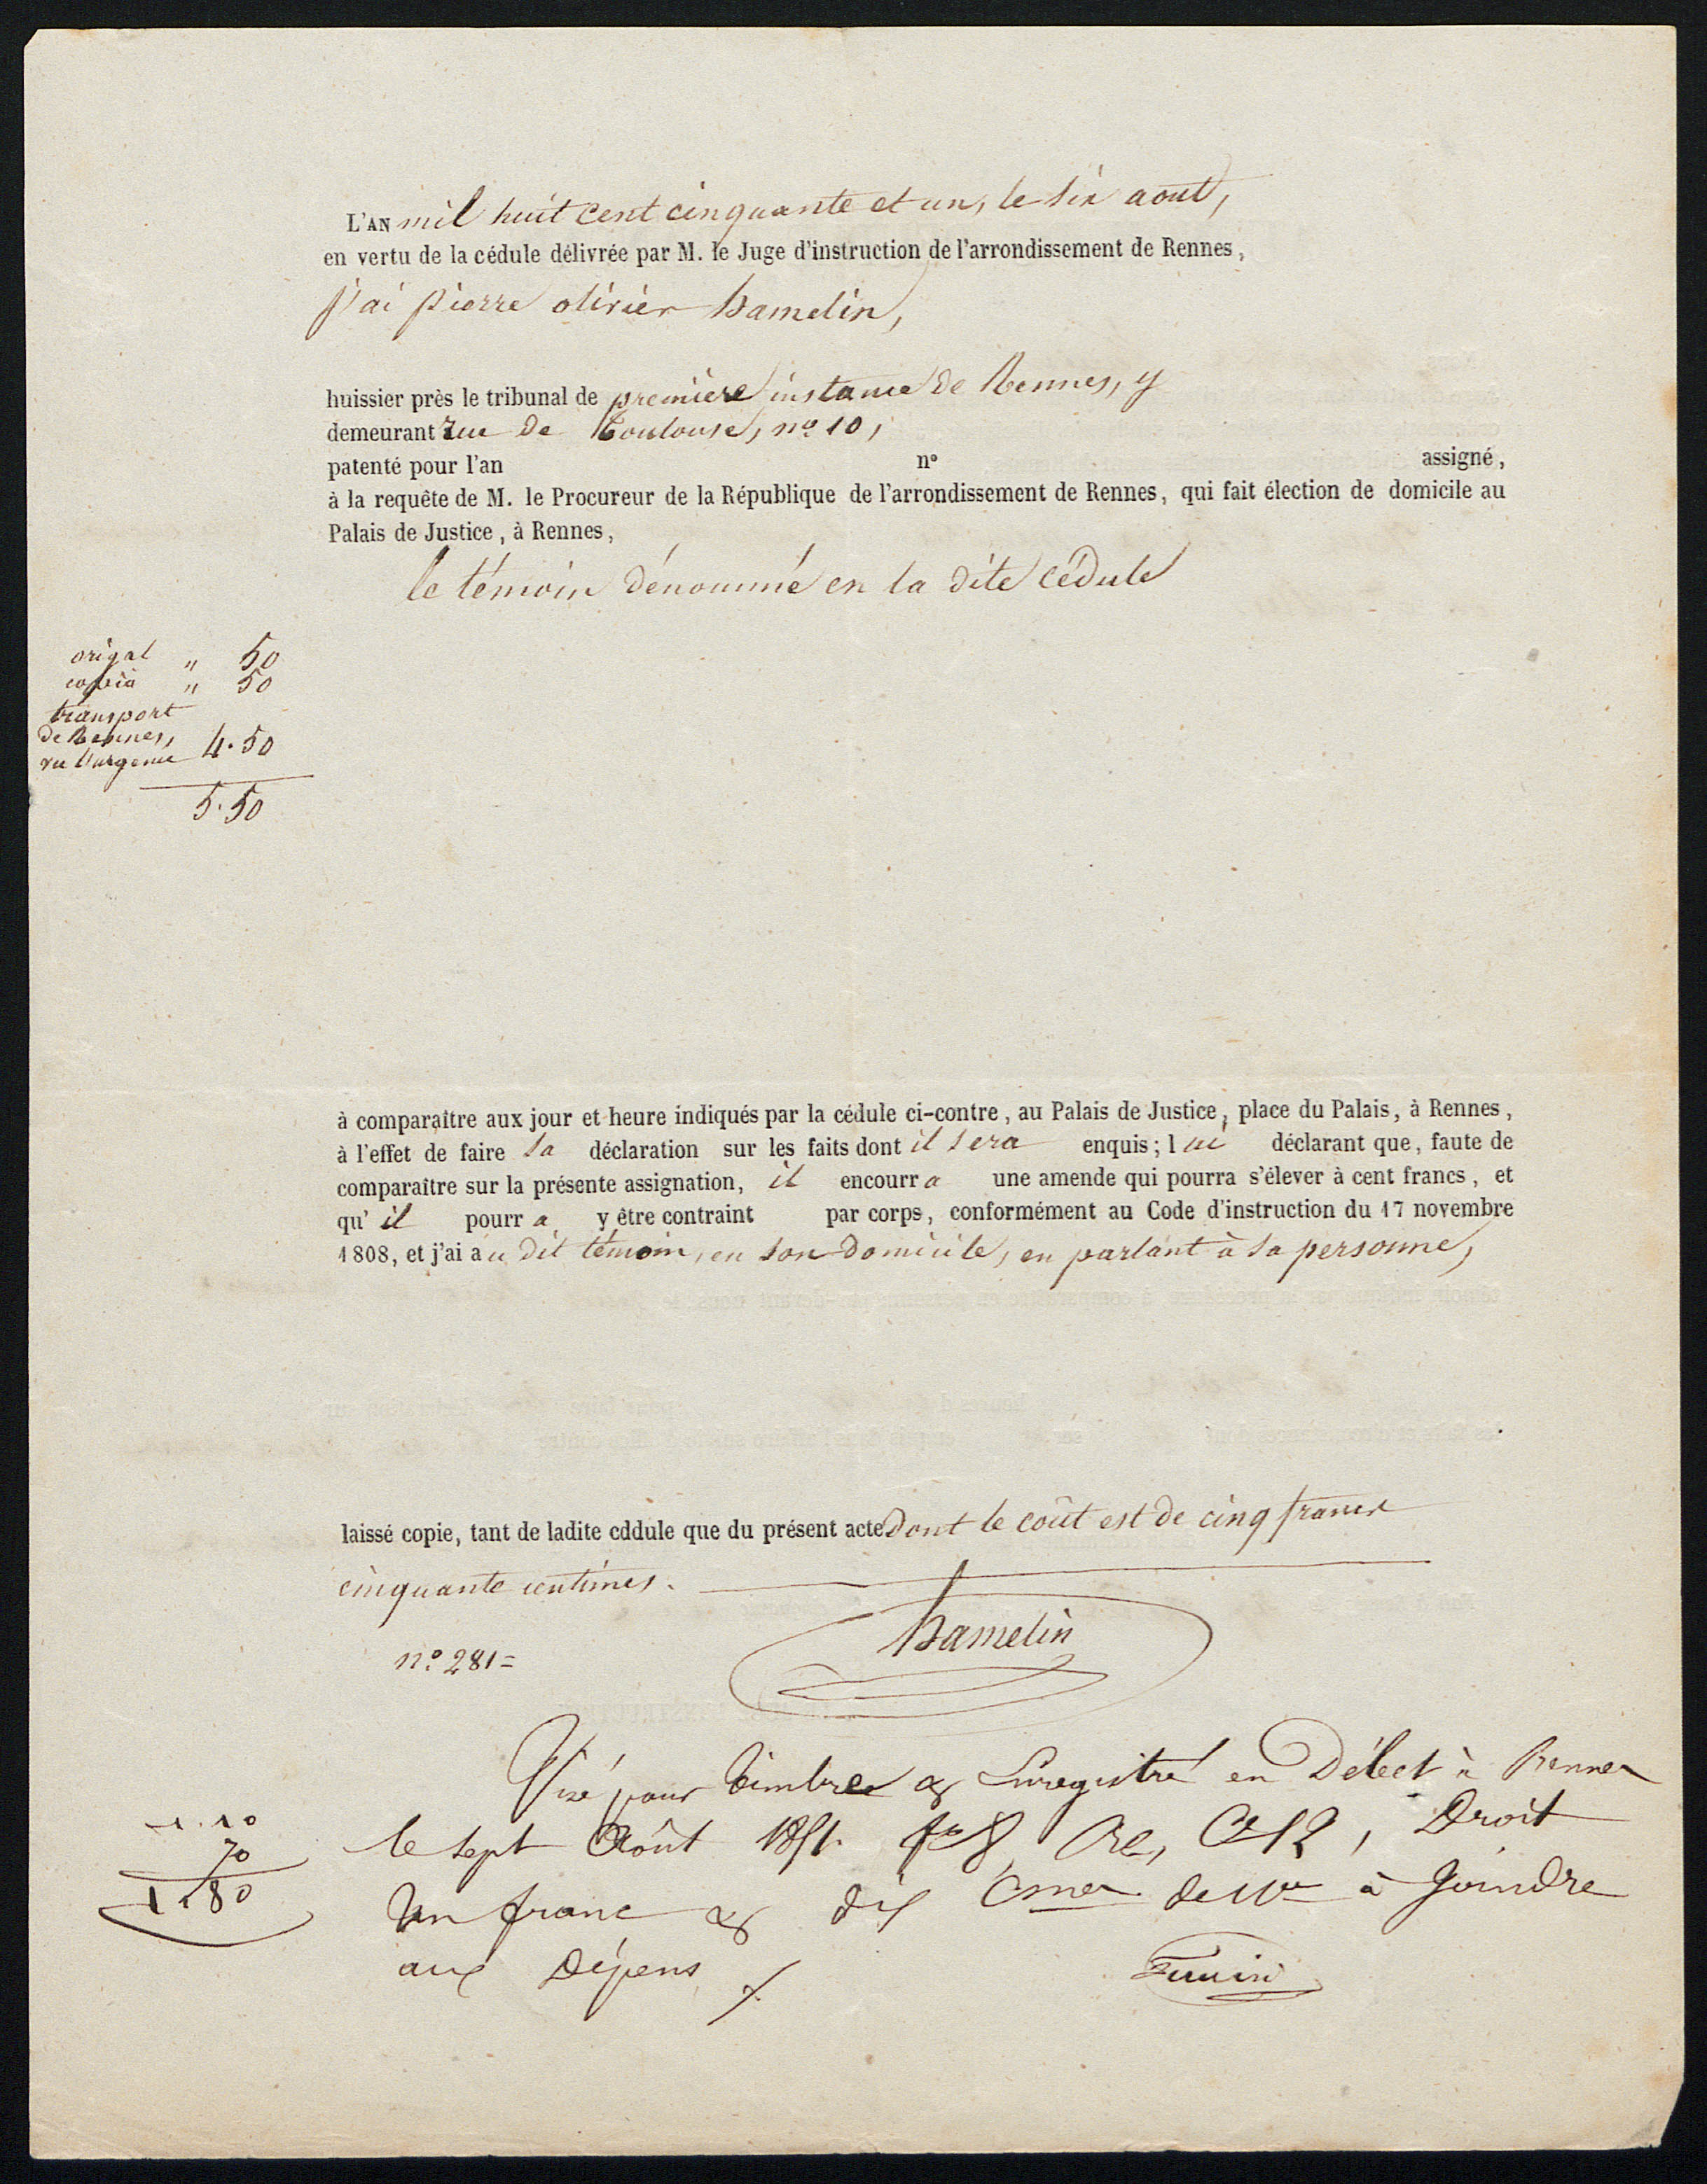 L'AN mil huit cent cinquante et un, le six aout,
en vertu de la cédule délivrée par M. le Juge d'instruction de l'arrondissement de Rennes,
j'ai pierre olivier hamelin,
huissier près le tribunal de première instance de Rennes, y
demeurant rue de Toulouse, no 10,
patenté pour l'an n° assigné,
à la requête de M. le Procureur de la République de l'arrondissement de Rennes, qui fait élection de domicile au
Palais de Justice, à Rennes,
le témoin dénommé en la dite cédule
origal " 50
copie " 50
transport
de Rennes,
vu l'urgence 4.50
5.50
à comparaître aux jour et heure indiqués par la cédule ci-contre, au Palais de Justice, place du Palais, à Rennes,
à l'effet de faire sa déclaration sur les faits dont il sera enquis; lui déclarant que, faute de
comparaître sur la présente assignation, il encourra une amende qui pourra s'élever à cent francs, et
qu'il pourra y être contraint par corps, conformément au Code d'instruction du 17 novembre
1808, et j'ai au dit témoin, en son domicile, en parlant à sa personne,
laissé copie, tant de ladite cddule que du présent acte dont le coût est de cinq francs
cinquante centimes.
hamelin
no. 281=
Visé pour timbre & Enregistré en Débet à Rennes
le sept Août 1851. Droit
Un franc & dix Cmes à Joindre
aux Dépens
1.10
70
1.80